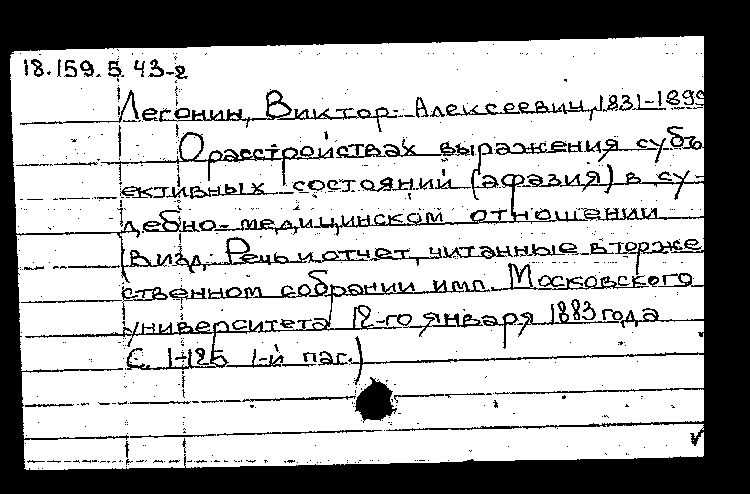 18.159.5.43-2
Легонин, Виктор Алексеевич, 1831-1899
О расстройствах выражения субъ
ективных состояний (афазия) в су-
дебно-медицинском отношении
(В изд: Речь и отчет, читанные в торже
ственном собрании имп. Московского
университета 12-го января 1883 года
С. 1-125 1-й паг.)